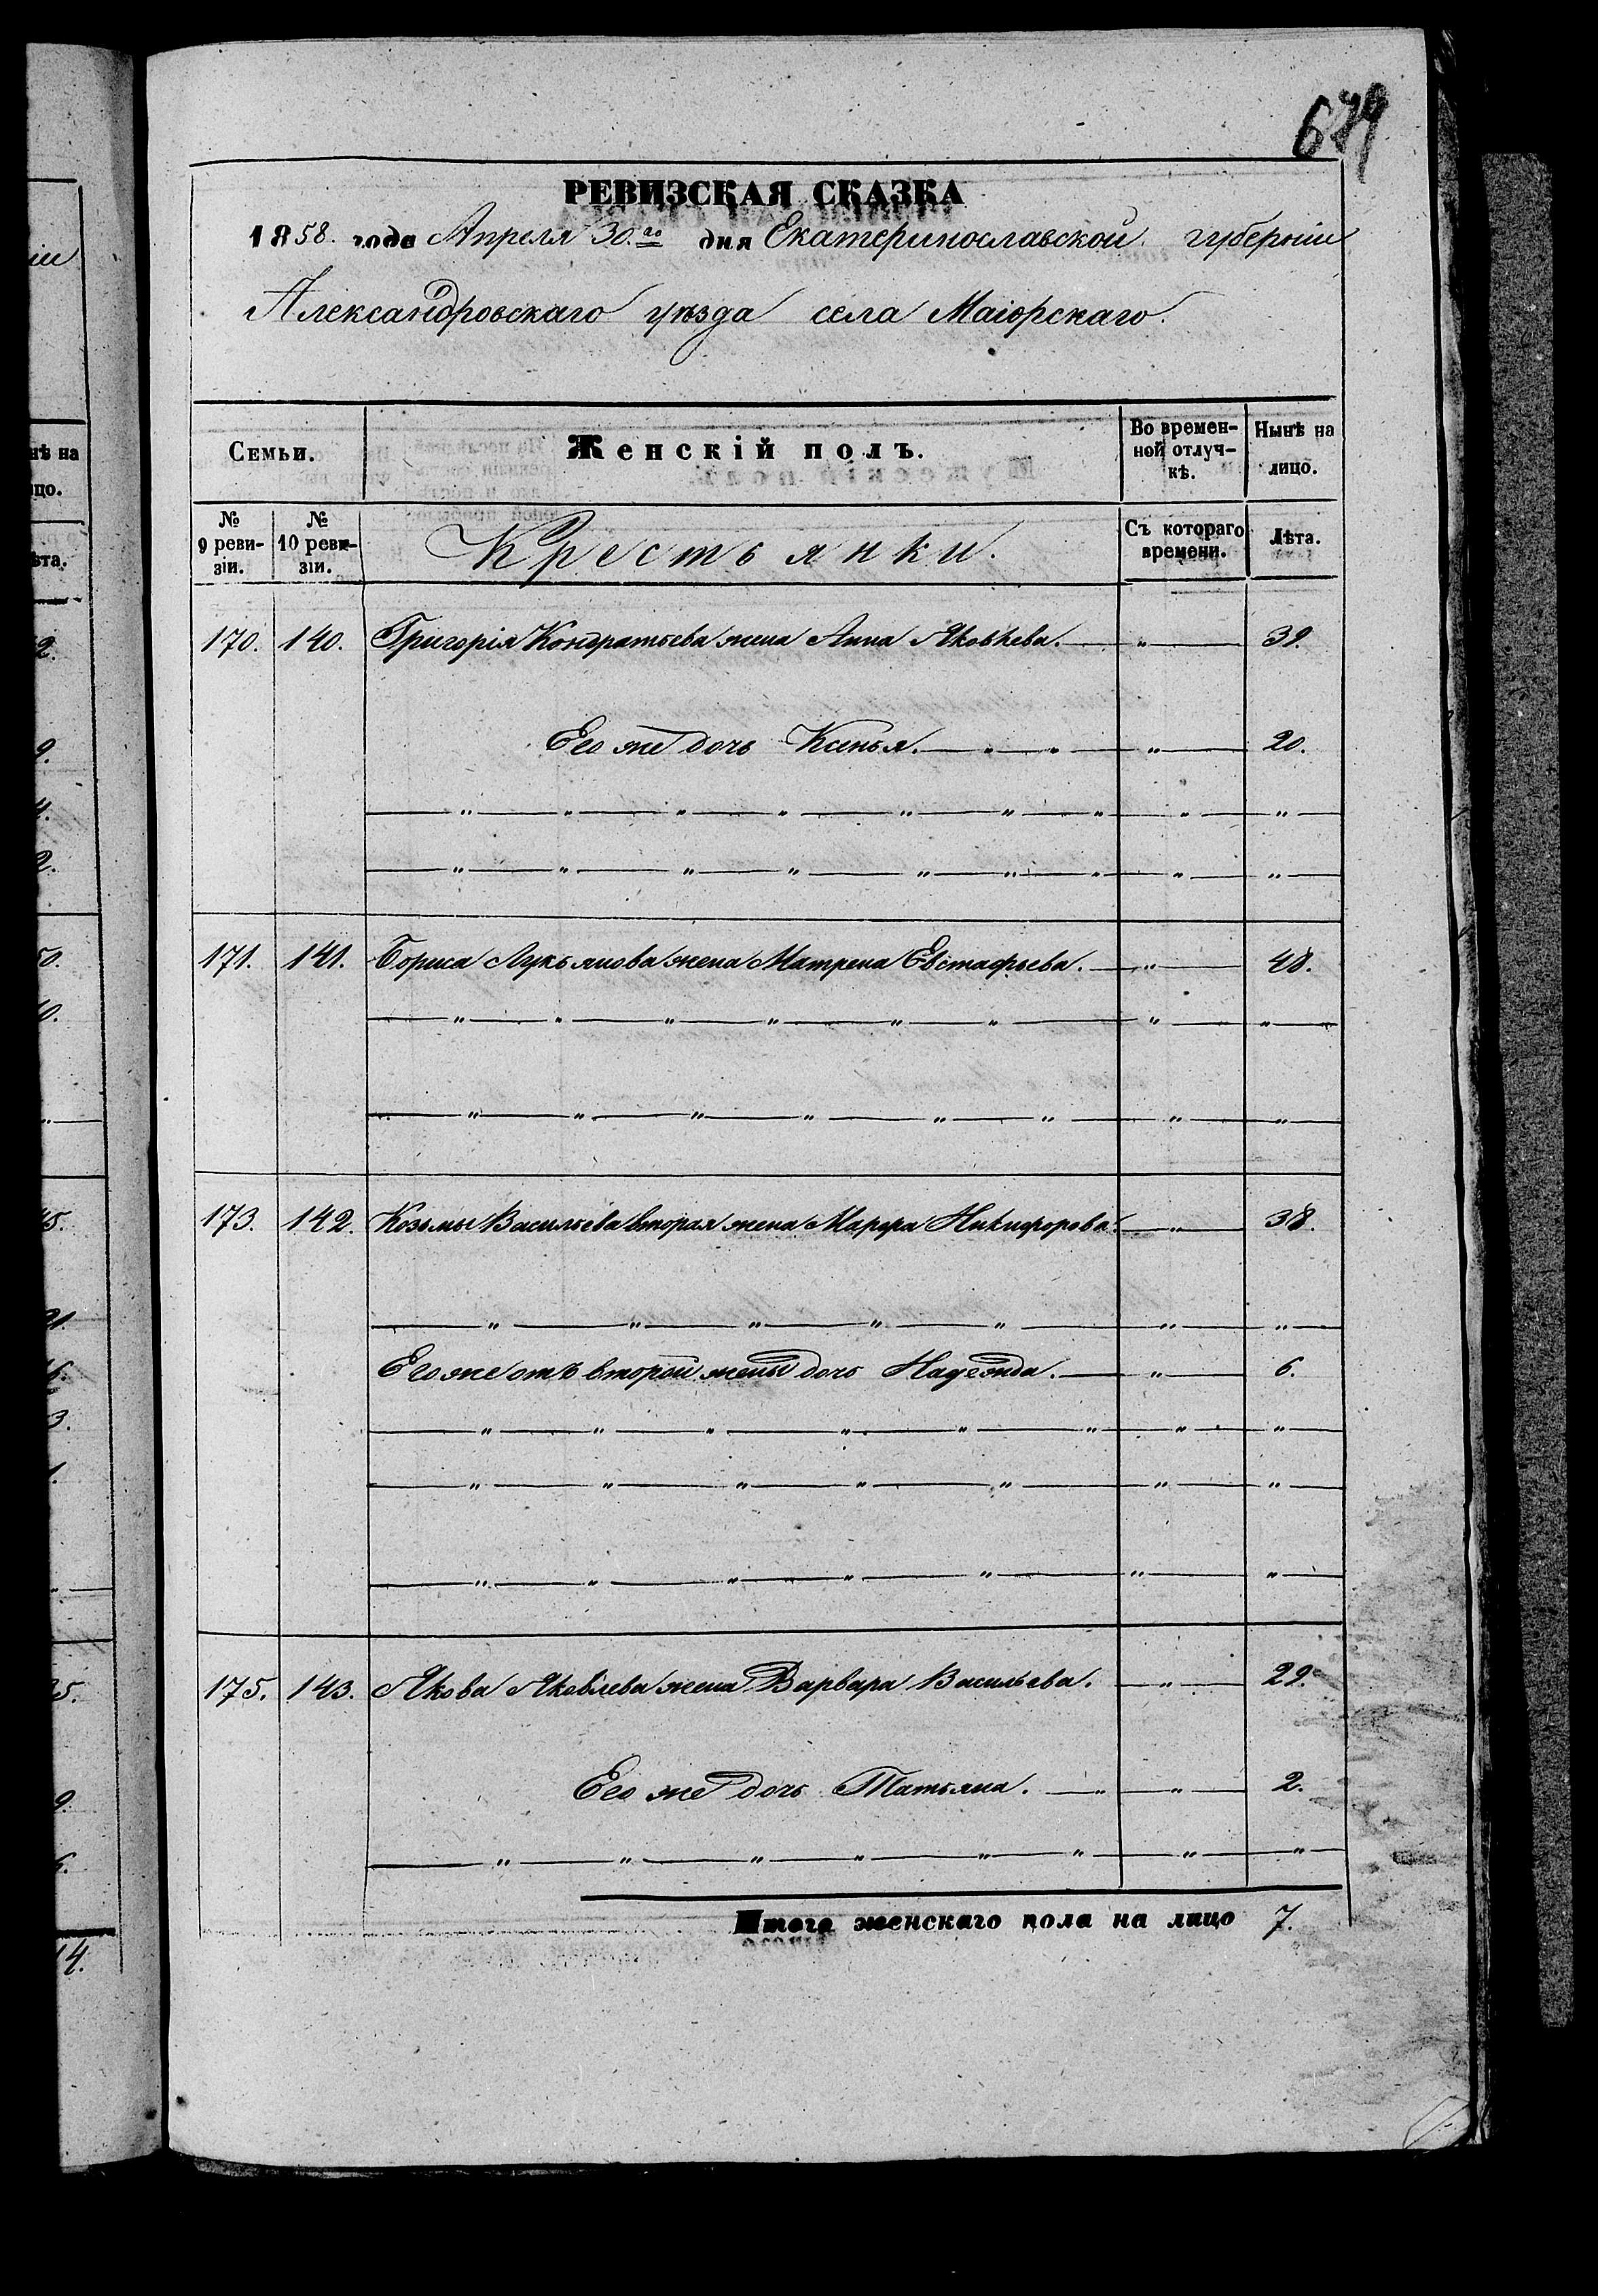 679
РЕВИЗСКАЯ СКАЗКА
1858. года Апреля 30.го дня Екатеринославской губерніи
Александровскаго уѣзда села Маіорскаго.
Семьи. Женскій полъ. Во времен- Нынѣ на
ной отлуч- лицо.
кѣ.
№ № Крестьянки. Съ котораго Лѣта.
9 реви- 10 реви- времени.
зіи. зіи.
170. 140. Григорія Кондратьева жена Анна Яковлева. — " — 39.
Его же дочь Ксенья. — " — " — " — 20.
— " — " — " — " — " — " — " — " — " —
— " — " — " — " — " — " — " — " — " —
171. 141. Бориса Лукьянова жена Матрена Евстафьева. — " — 48.
— " — " — " — " — " — " — " — " —
— " — " — " — " — " — " — " — " —
173. 142. Козьмы Васильева вторая жена Марфа Никифорова. — " — 38.
— " — " — " — " — " — " — " —
Его же отъ второй жены дочь Надежда. — " — 6.
— " — " — " — " — " — " — " — " —
— " — " — " — " — " — " — " —
— " — " — " — " — " — " — " —
175. 143. Якова Яковлева жена Варвара Васильева. — " — 29.
Его же дочь Татьяна. — " — " — 2.
— " — " — " — " — " — " — " — " —
Итого женскаго пола на лицо 7.
ніи
нѣ на
цо.
ѣта.
2.
9.
4.
2.
50.
10.
"
45.
21.
16.
3.
1.
25.
9.
14.